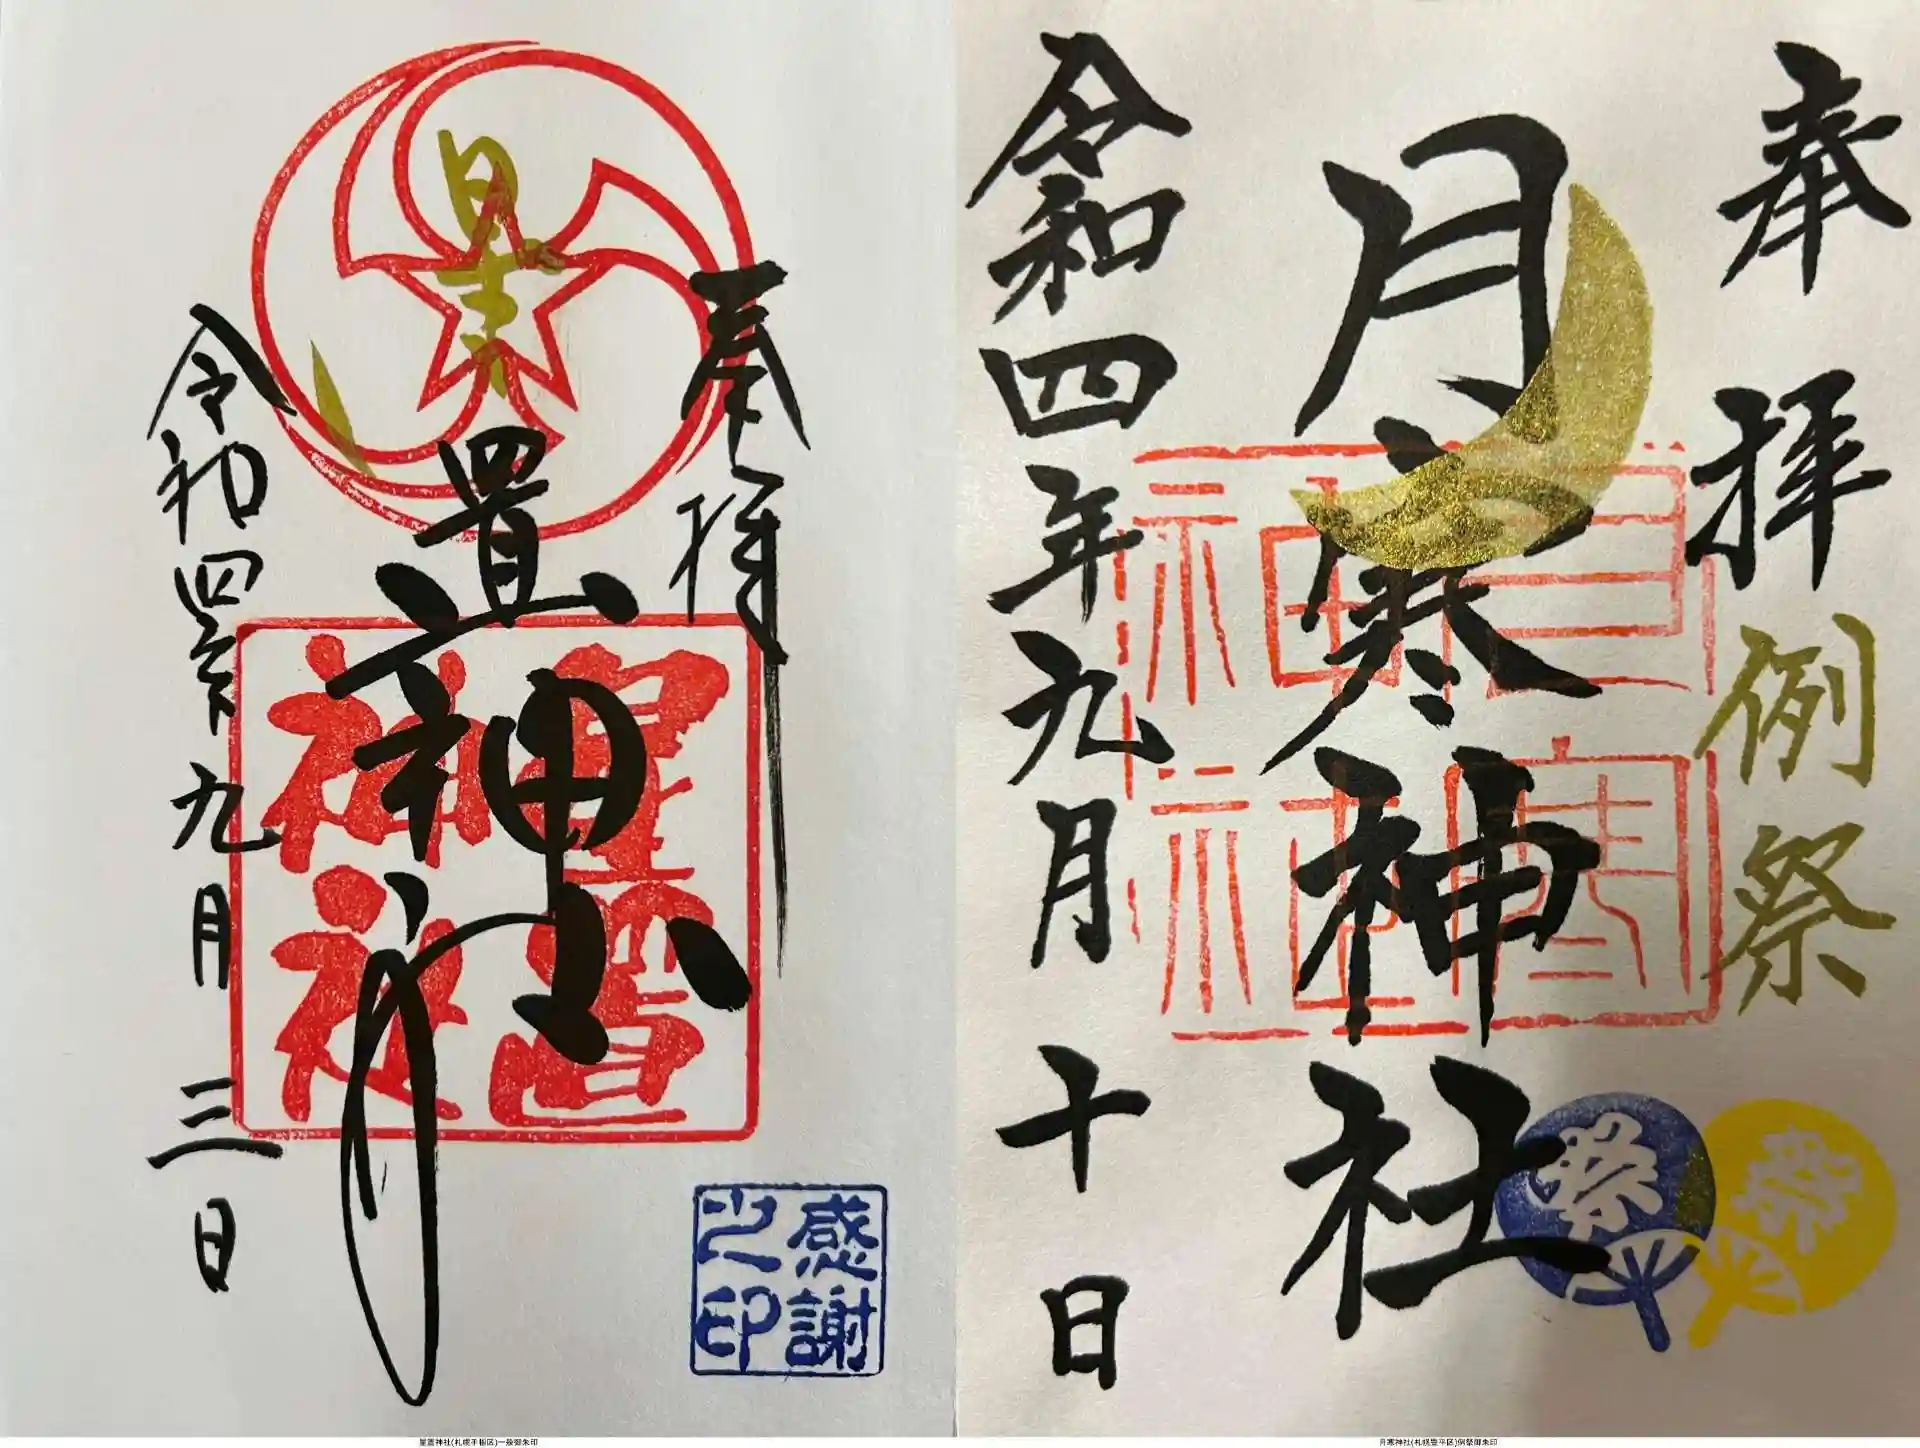 奉拝
星置神社
令和四年九月三日
星置神社
感謝之印
星置神社(札幌手稲区)一般御朱印
奉拝
例祭
月寒神社
令和四年九月十日
月寒神社
祭
祭
月寒神社(札幌豊平区)例祭御朱印